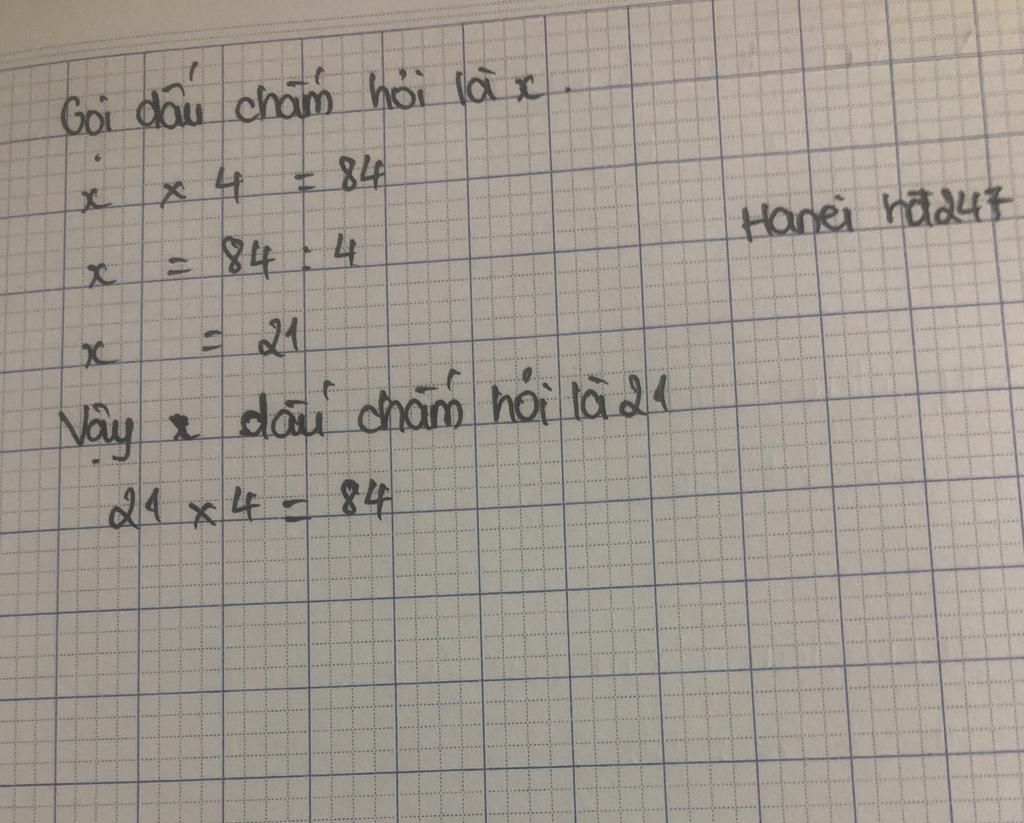 Gọi dấu chấm hỏi là x.
x × 4 = 84
Hanei hđ247
x = 84 : 4
x = 21
Vậy x dấu chấm hỏi là 21
21 × 4 = 84